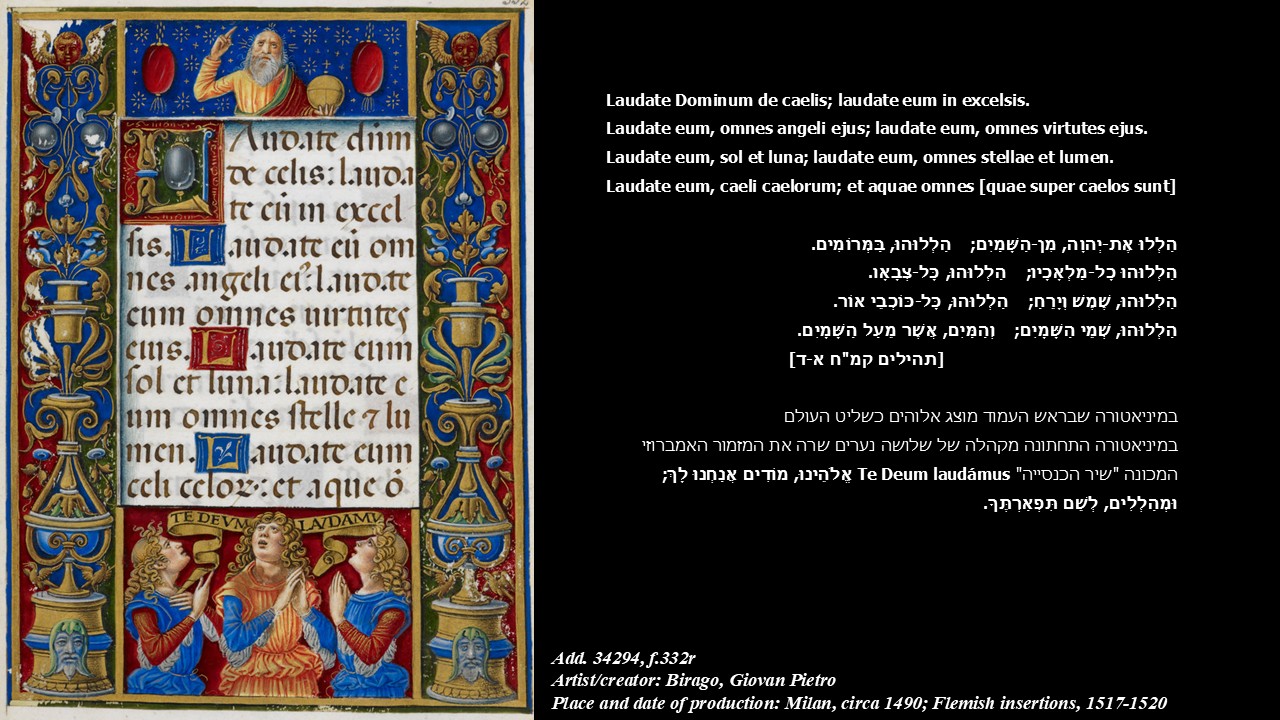 Laudate dñm
de celis: lauda
te eũ in excel
sis. Laudate eũ om
nes angeli eiꝰ: laudate
eum omnes uirtutes
eius. Laudate eum
sol et luna: laudate e
um omnes stelle ⁊ lu
men. Laudate eum
celi celoꝝ: et aque õ
TE DEVM LAVDAMV
Laudate Dominum de caelis; laudate eum in excelsis.
Laudate eum, omnes angeli ejus; laudate eum, omnes virtutes ejus.
Laudate eum, sol et luna; laudate eum, omnes stellae et lumen.
Laudate eum, caeli caelorum; et aquae omnes [quae super caelos sunt]
הַלְלוּ אֶת-יְהוָה, מִן-הַשָּׁמַיִם; הַלְלוּהוּ, בַּמְּרוֹמִים.
הַלְלוּהוּ כָל-מַלְאָכָיו; הַלְלוּהוּ, כָּל-צְבָאָו.
הַלְלוּהוּ, שֶׁמֶשׁ וְיָרֵחַ; הַלְלוּהוּ, כָּל-כּוֹכְבֵי אוֹר.
הַלְלוּהוּ, שְׁמֵי הַשָּׁמָיִם; וְהַמַּיִם, אֲשֶׁר מֵעַל הַשָּׁמָיִם.
[תהילים קמ"ח א-ד]
במיניאטורה שבראש העמוד מוצג אלוהים כשליט העולם
במיניאטורה התחתונה מקהלה של שלושה נערים שרה את המזמור האמברוזי
המכונה "שיר הכנסייה" Te Deum laudámus אֱלֹהֵינוּ, מוֹדִים אֲנַחְנוּ לָךְ;
וּמְהַלְלִים, לְשֵׁם תִּפְאַרְתֶּךָ.
Add. 34294, f.332r
Artist/creator: Birago, Giovan Pietro
Place and date of production: Milan, circa 1490; Flemish insertions, 1517-1520